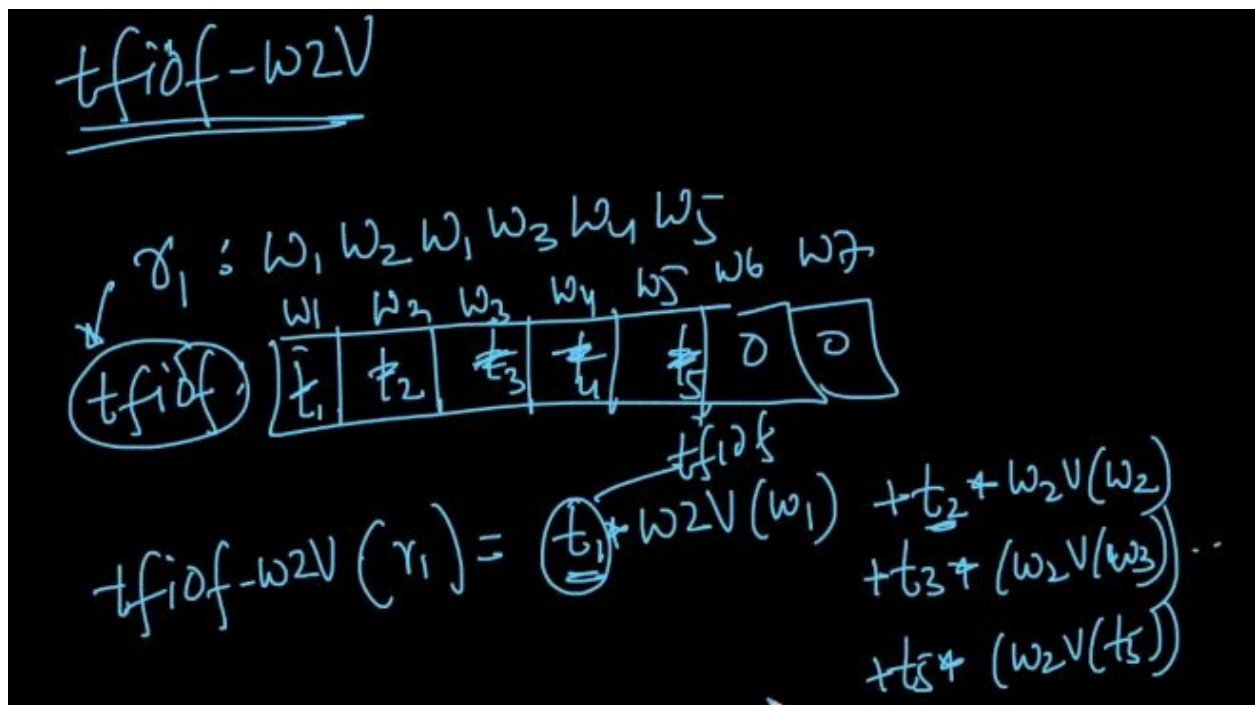 tfidf-W2V
r₁ : W₁ W₂ W₁ W₃ W₄ W₅
W1 W₂ W₃ W₄ W5 W6 W7
tfidf: t₁ t₂ t₃ t₄ t₅ 0 0
tfidf
tfidf-W2V (r₁) = t₁ * W2V (W₁) + t₂ * W₂V(W₂)
+ t₃ * (W₂V(W₃)) ...
+ t₅ * (W₂V(t₅))